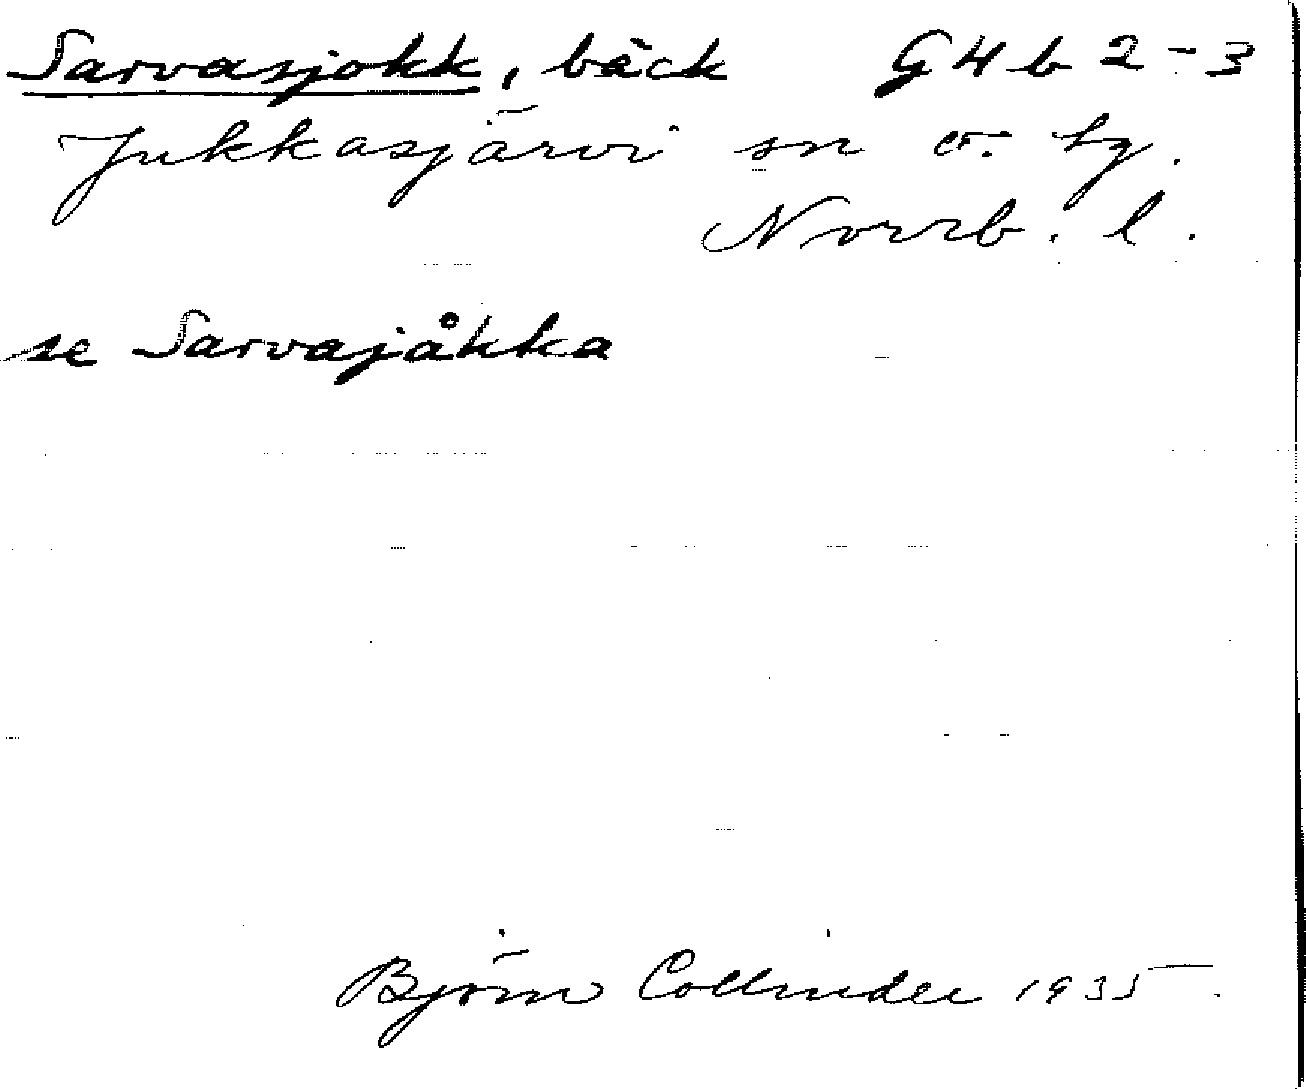 Sarvasjokk, bäck G4b2-3
Jukkasjärvi sn o. tg.
Norrb. l.
se Sarvajåkka
Björn Collinder 1935.